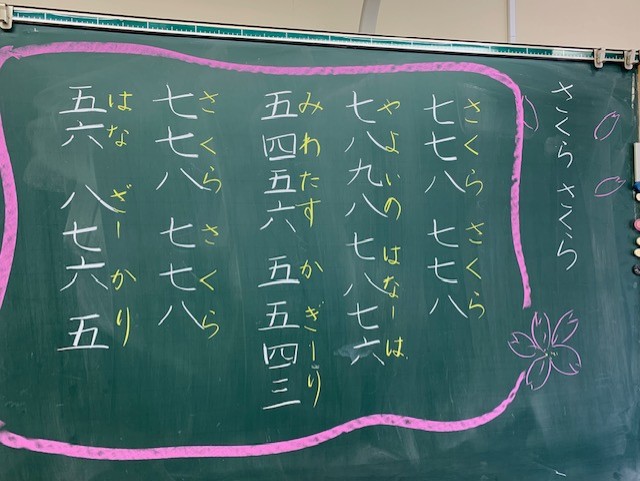 さくら さくら
さくら さくら
七七八 七七八
やよいの はなーは
七八九八 七八七六
みわたす かぎーり
五四五六 五五四三
さくら さくら
七七八 七七八
はな ざーかり
五六 八七六五